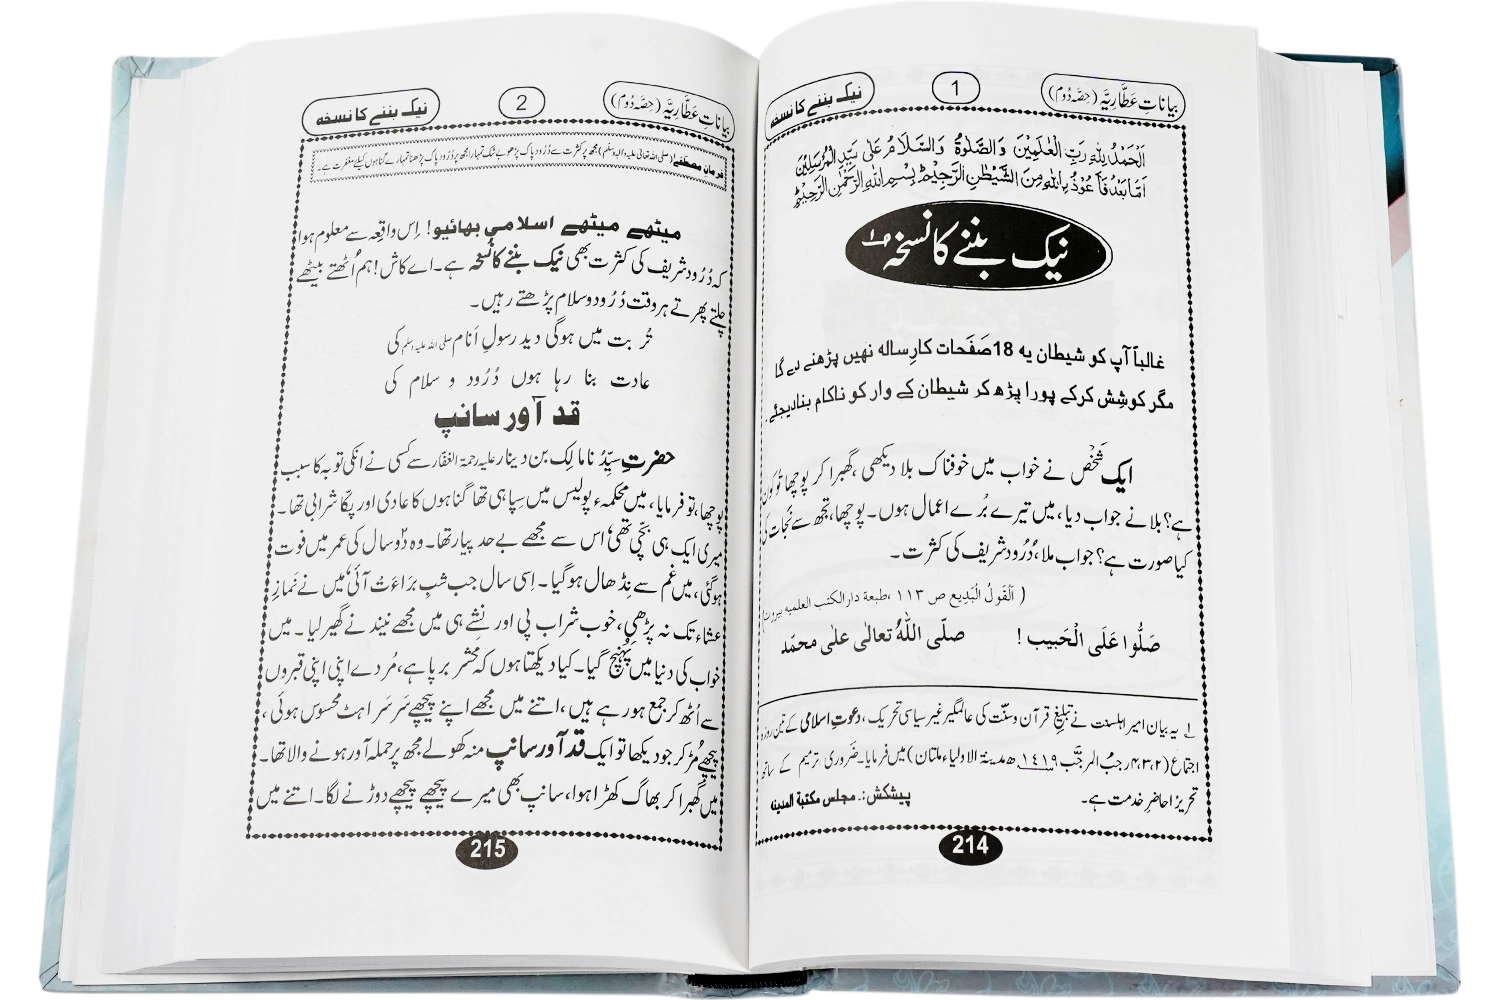 بیاناتِ عطّاریّہ (حصّہ دُوم)
1
نیک بننے کا نسخہ
اَلْحَمْدُ لِلّٰہِ رَبِّ الْعٰلَمِیْنَ وَالصَّلٰوۃُ وَالسَّلَامُ عَلٰی سَیِّدِ الْمُرْسَلِیْنَ
اَمَّا بَعْدُ فَاَعُوْذُ بِاللّٰہِ مِنَ الشَّیْطٰنِ الرَّجِیْمِ ؕ بِسْمِ اللّٰہِ الرَّحْمٰنِ الرَّحِیْمِ ؕ
نیک بننے کا نسخہ
غالباً آپ کو شیطان یہ 18 صَفَحات کا رِسالہ نھیں پڑھنے دے گا
مگر کوشِش کرکے پورا پڑھ کر شیطان کے وار کو ناکام بنا دیجئے.
ایک شَخْص نے خواب میں خوفناک بلا دیکھی، گھبرا کر پوچھا تُو کون
ہے؟ بلا نے جواب دیا، میں تیرے بُرے اعمال ہوں۔ پوچھا، تجھ سے نَجات کی
کیا صورت ہے؟ جواب ملا، دُرُود شریف کی کثرت۔
( اَلْقَولُ الْبَدِیع ص ۱۱۳، طبعۃ دار الکتب العلمیہ بیروت)
صَلُّوا عَلَی الْحَبِیب ! صلَّی اللّٰہُ تعالٰی علٰی محمّد
۱ یہ بیان امیر اہلسنت نے تبلیغِ قرآن وسنّت کی عالمگیر غیر سیاسی تحریک، دعوتِ اسلامی کے تین روزہ
اجتماع (۲،۳،۴ رجبُ المرجَّب ۱۴۱۹ھ مدینۃ الاولیاء ملتان) میں فرمایا۔ ضَروری ترمیم کے ساتھ
تحریراً حاضرِ خدمت ہے۔ پیشکش:. مجلس مکتبۃ المدینہ
214
بیاناتِ عطّاریّہ (حصّہ دُوم)
2
نیک بننے کا نسخہ
فرمانِ مصطفٰے (صلی اللہ تعالیٰ علیہ والہ وسلم) مجھ پر کثرت سے دُرُود پاک پڑھو بے شک تمہارا مجھ پر دُرُود پاک پڑھنا تمہارے گناہوں کیلئے مغفرت ہے۔
میٹھے میٹھے اسلامی بھائیو! اِس واقِعہ سے معلوم ہوا
کہ دُرُود شریف کی کثرت بھی نیک بننے کا نُسْخہ ہے۔ اے کاش! ہم اُٹھتے بیٹھتے
چلتے پھرتے ہر وقت دُرُود وسلام پڑھتے رہیں۔
تُربت میں ہوگی دید رسولِ اَنام صلی اللہ علیہ وسلم کی
عادت بنا رہا ہوں دُرُود و سلام کی
قد آور سانپ
حضرتِ سیِّدُنا مالِک بن دینار علیہ رحمۃ الغفّار سے کسی نے انکی توبہ کا سبب
پوچھا، تو فرمایا، میں محکمہء پولیس میں سپاہی تھا گناہوں کا عادی اور پکّا شرابی تھا۔
میری ایک ہی بچّی تھی، اُس سے مجھے بے حد پیار تھا۔ وہ دو سال کی عمر میں فوت
ہوگئی، میں غم سے نِڈھال ہوگیا۔ اِسی سال جب شبِ برَاءَت آئی میں نے نَمازِ
عشاء تک نہ پڑھی، خوب شراب پی اور نشے ہی میں مجھے نیند نے گھیر لیا۔ میں
خواب کی دنیا میں پہنچ گیا۔ کیا دیکھتا ہوں کہ مَحشر برپا ہے، مُردے اپنی اپنی قبروں
سے اُٹھ کر جمع ہو رہے ہیں، اتنے میں مجھے اپنے پیچھے سَرسَراہٹ محسوس ہوئی،
پیچھے مُڑ کر جو دیکھا تو ایک قد آور سانپ منہ کھولے مجھ پر حملہ آور ہونے والا تھا۔
میں گھبرا کر بھاگ کھڑا ہوا، سانپ بھی میرے پیچھے پیچھے دوڑنے لگا۔ اتنے میں
215